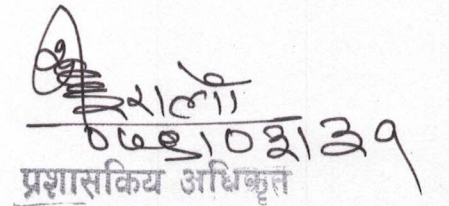 ०७९।०३।३१
प्रशासकिय अधिकृत